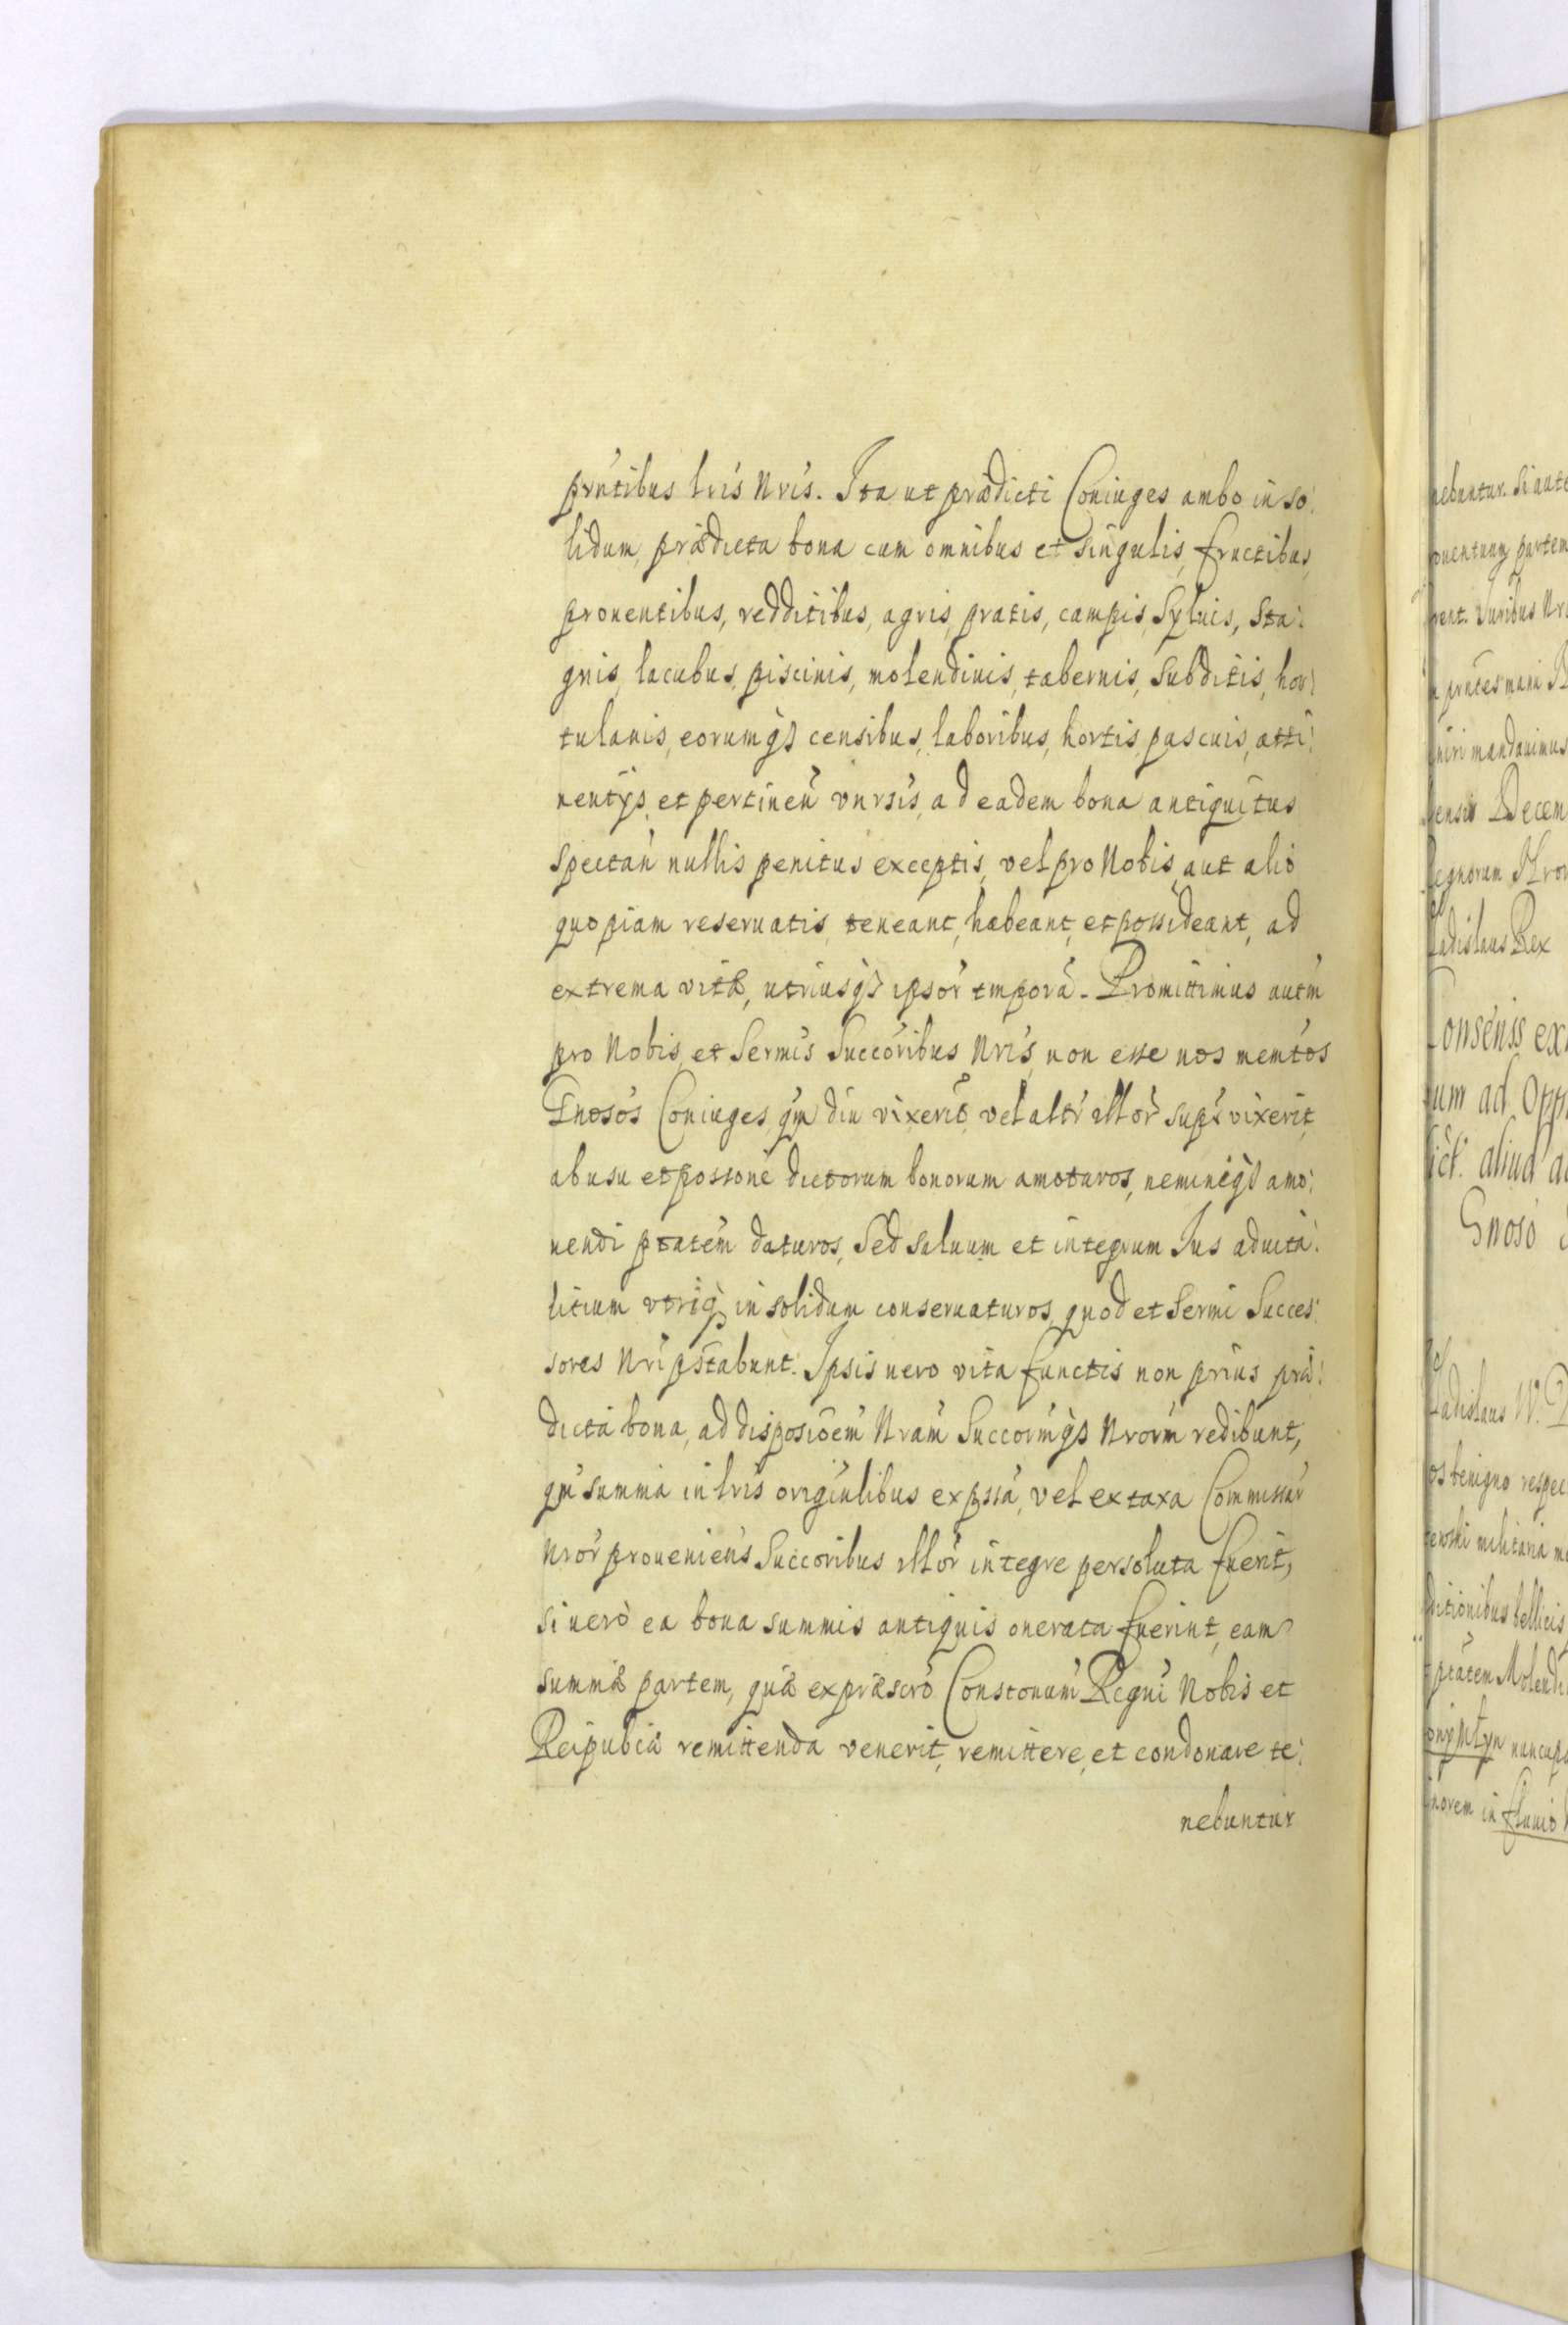 prńtibus lrís Nrís. Ita ut prædicti Coniuges ambo in so:
lidum, prædicta bona cum omnibus et singulis, fructibus,
prouentibus, redditibus, agris, pratis, campis, Syluis, Sta:
gnis, lacubus, piscinis, molendinis, tabernis, Subditis, hor:
tulanis, eorumq3 censibus, laboribus, hortis, pascuis, atti:
nentijs, et pertineń vnrsís, ad eadem bona antiquitus
spectań nullis penitus exceptis, vel pro Nobis, aut alió
quopiam reseruatis, teneant, habeant, et possideant, ad
extrema vitæ, utriusq3 ipsoŕ tmpora. Promittimus autm
pro Nobis, et Sermís Succóribus Nrís, non esse nos memtos
Gnosós Coniuges, qm diu vixerit, vel altr illoŕ sups vixerit,
ab usu et possoné dictorum bonorum amoturos, neminiq3 amo:
uendi ptatem daturos, Sed saluum et integrum Ius aduita:
litium vtriq3 in solidum conseruaturos, quod et Sermi Succes:
sores Nri pstabunt. Ipsis uero vita functis non prius præ:
dicta bona, ad disposioem Nram Succormq3 Nrorm redibunt,
qm summa in lrís originlibus expssa, vel ex taxa Commissar
Nroŕ proueniens Succoribus illoŕ integre persoluta fuerit,
si uerò ea bona summis antiquis onerata fuerint, eam
summæ partem, quæ ex præscro Constonum Regni Nobis et
Reipubcæ remittenda venerit, remittere, et condonare te:
nebuntur
nebuntur. Si aute
partem
Iuribus Nr
mandauimus
Decem
Rex
onsens ex
um ad Opp
aliud a
Gnoso
ladislaus W.
os benigno respec
militaria
ditionibus bellicis
ptatem Molendi
nuncupa
in fluuio